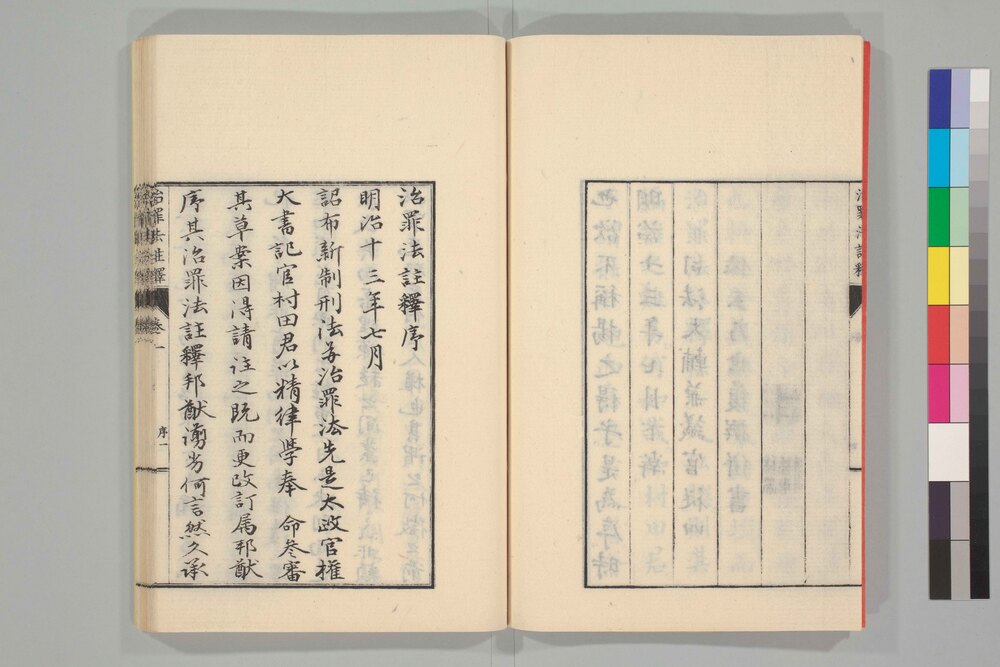 治罪法註釋序
明治十三年七月
詔布新制刑法及治罪法先是太政官權
大書記官村田君以精律學奉 命參審
其草案因得請註之既而更改訂属邦猷
序其治罪法註釋邦猷譾劣何言然久承
治罪法註釋 卷一 序一
治罪法註釋